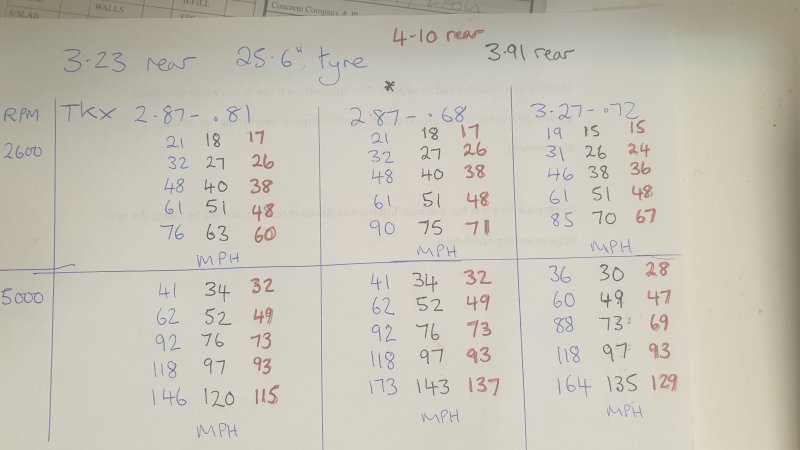 S/SLAB
WALLS
B/FILL
Concrete Company &
4.10 rear
3.23 rear 25.6" tyre 3.91 rear
*
RPM TKX 2.87 - .81 2.87 - .68 3.27 - .72
2600 21 18 17 21 18 17 19 15 15
32 27 26 32 27 26 31 26 24
48 40 38 48 40 38 46 38 36
61 51 48 61 51 48 61 51 48
76 63 60 90 75 71 85 70 67
MPH MPH MPH
5000 41 34 32 41 34 32 36 30 28
62 52 49 62 52 49 60 49 47
92 76 73 92 76 73 88 73 69
118 97 93 118 97 93 118 97 93
146 120 115 173 143 137 164 135 129
MPH MPH MPH